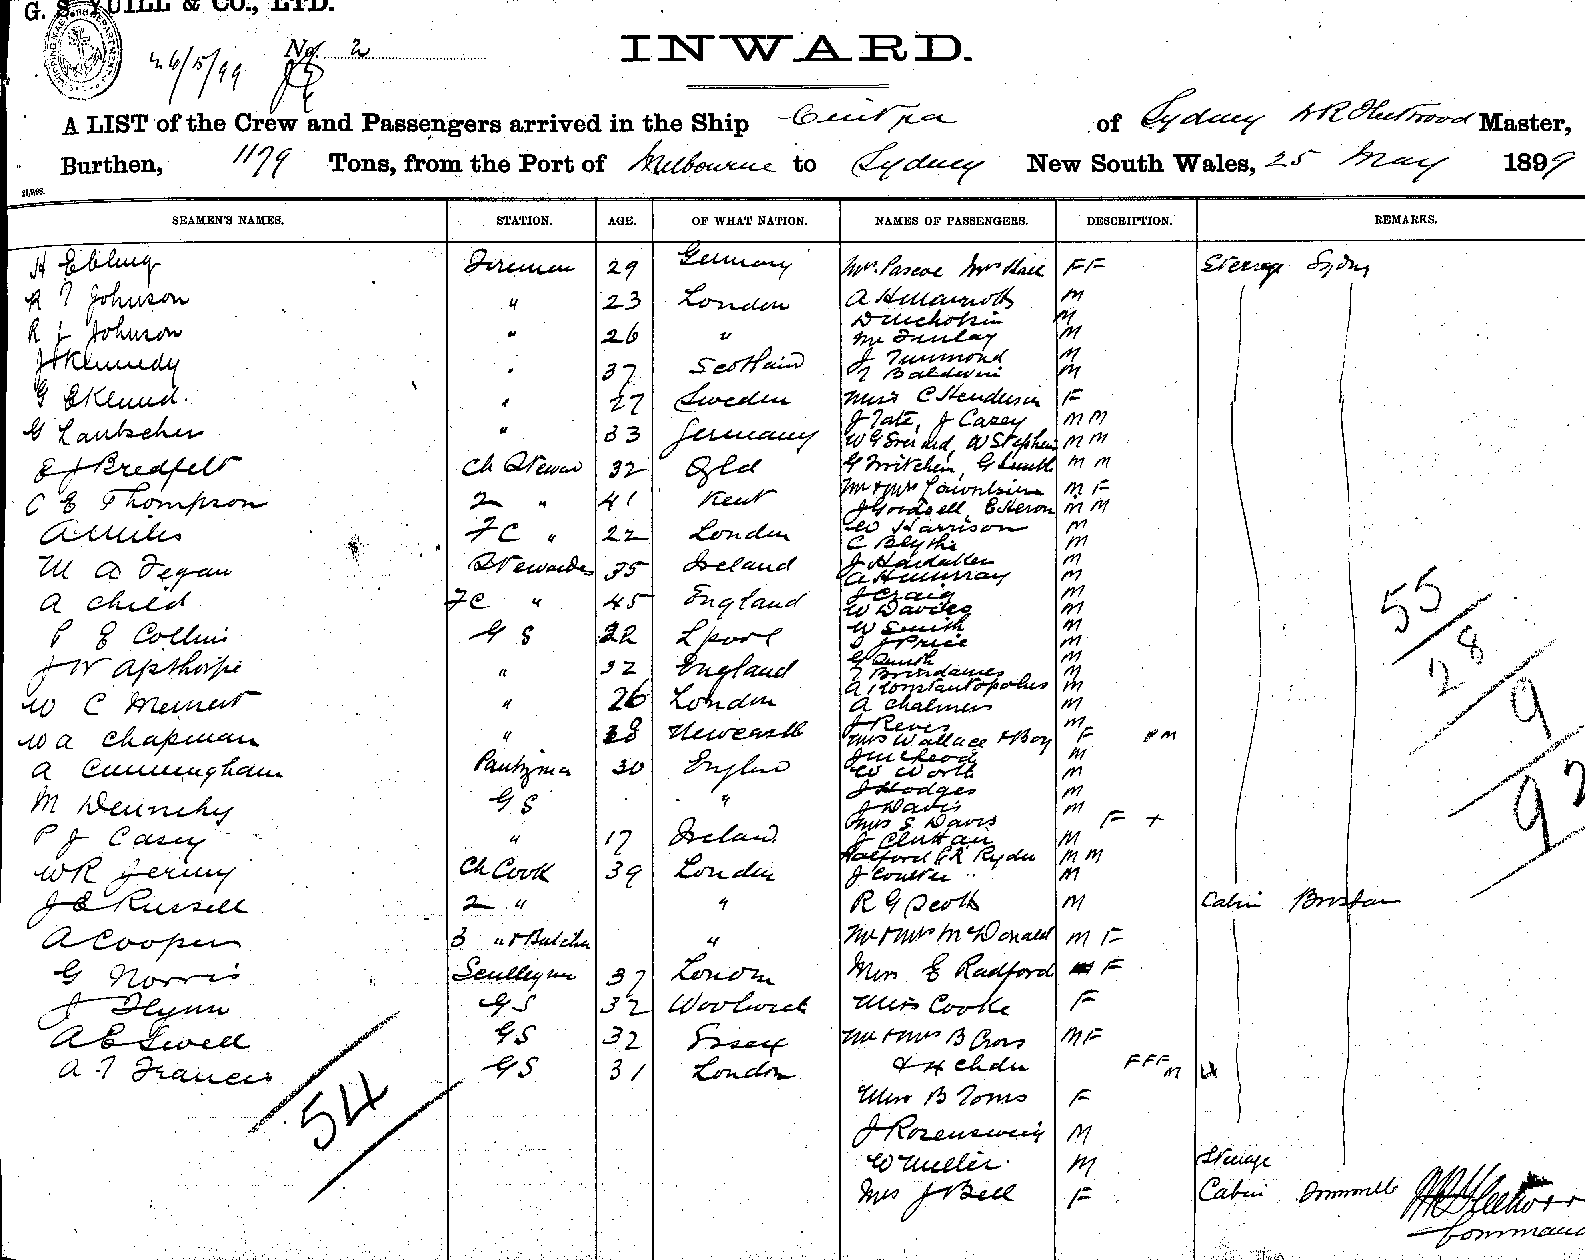 G. S. YUILL & CO., LTD.
26/5/99 No. 2
INWARD.
A LIST of the Crew and Passengers arrived in the Ship Cintra of Sydney Master,
Burthen, 1179 Tons, from the Port of Melbourne to Sydney New South Wales, 25 May 1899
SEAMEN'S NAMES. STATION. AGE. OF WHAT NATION. NAMES OF PASSENGERS. DESCRIPTION. REMARKS.
H Ebling Firemen 29 Germany Mrs Pascoe Mrs Hall FF Steerage Sydny
A T Johnson " 23 London A H Marriott M
M
R J Johnson " 26 " Mr Finlay M
J Kennedy " 37 Scotland J Dummond M
T Baldwin M
G Eklund. " 27 Sweden Miss C Henderson F
G Lautscher " 33 Germany J Tate, J Casey M M
W Stephen M M
E J Bredfelt Ch Steward 32 Qld G Smith M M
Mr & Mrs M F
C E Thompson 2 " 41 Kent J Goodsell, E Heron M M
W Harrison M
A Miles FC " 22 London C Blythe M
M A Fegan Stewardes 35 Ireland M
A H Murray M
A Child FC " 45 England J Craig M
W Davies M
P E Collins G S 22 Lpool W Smith M
J Price M
J W Apthorpe " 32 England G Smith M
M
A Konstantopolus M
W C Meinert " 26 London A Chalmers M
J Reves M
W A Chapman " 28 Newcastle Mrs Wallace & Boy F M
J McLeod M
A Cunningham Pantryman 30 Englnd W Worth M
J Hodges M
M Dennehy G S " J Davis M
Mrs S Davis F +
P J Casey " 17 Ireland M
Halford & R Ryder M M
W R Jermy Ch Cook 39 London J Coulter M
J E Russell 2 " " R G Scott M Cabin Brisbane
A Cooper 3 " & Butcher " Mr & Mrs McDonald M F
G Norris Sculleyman 37 London Miss E Radford F
J Flynn G S 32 Woolwich Miss Cooke F
A E Sewell G S 32 Essex Mr & Mrs B Cross M F
A T Francis G S 31 London & 4 chdn FFF M 4
Miss B Toms F
J Rosensweig M
W Muller. M Steerage
Mrs J Bell F Cabin
54
55
28
9
92